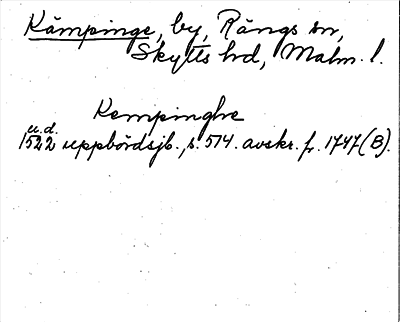 Kämpinge, by, Rängs sn,
Skytts hd, Malm. l.
Kempinghe
u.d.
1522 uppbördsjb., s. 514. avskr. fr. 1747 (B).